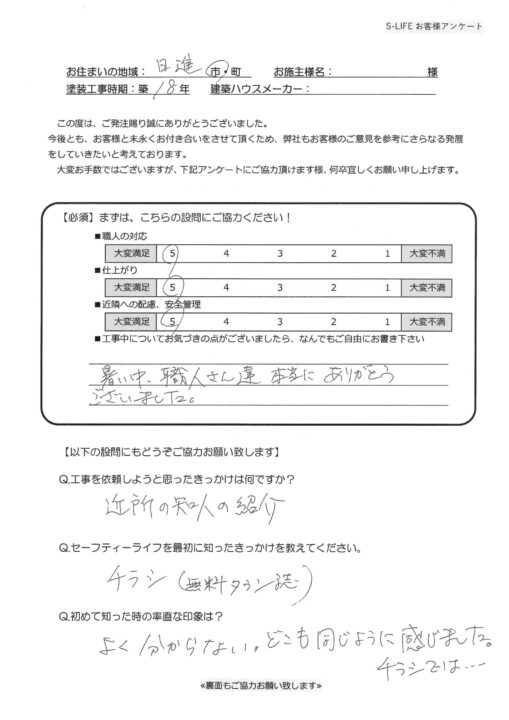 S-LIFE お客様アンケート
お住まいの地域： 日進 市・町 お施主様名： 様
塗装工事時期：築 18 年 建築ハウスメーカー：
この度は、ご発注賜り誠にありがとうございました。
今後とも、お客様と末永くお付き合いをさせて頂くため、弊社もお客様のご意見を参考にさらなる発展
をしていきたいと考えております。
大変お手数ではございますが、下記アンケートにご協力頂けます様、何卒宜しくお願い申し上げます。
【必須】まずは、こちらの設問にご協力ください！
■職人の対応
大変満足 5 4 3 2 1 大変不満
■仕上がり
大変満足 5 4 3 2 1 大変不満
■近隣への配慮、安全管理
大変満足 5 4 3 2 1 大変不満
■工事中についてお気づきの点がございましたら、なんでもご自由にお書き下さい
暑い中、職人さん達 本当に ありがとう
ございました。
【以下の設問にもどうぞご協力お願い致します】
Q.工事を依頼しようと思ったきっかけは何ですか？
近所の知人の紹介
Q.セーフティーライフを最初に知ったきっかけを教えてください。
チラシ（無料タウン誌）
Q.初めて知った時の率直な印象は？
よく分からない。どこも同じように感じました。
チラシでは…
≪裏面もご協力お願い致します≫